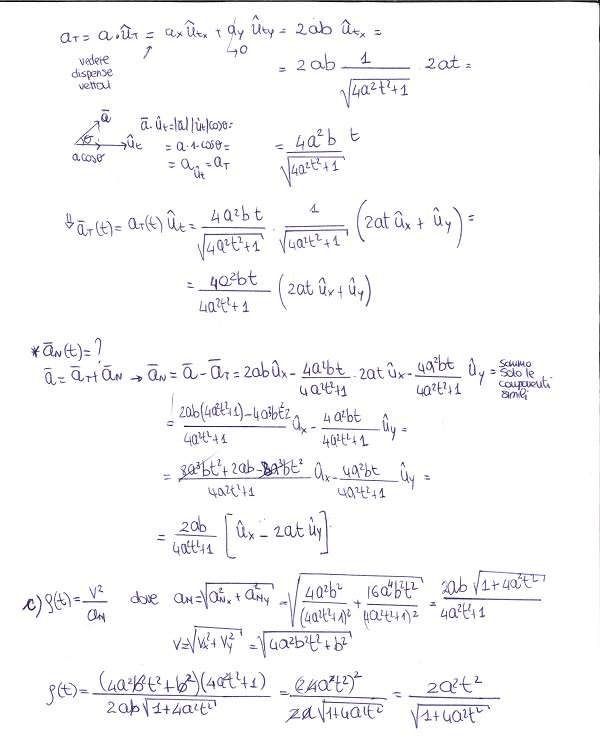 a_T = a·û_T = a_x û_tx + a_y û_ty = 2ab û_tx =
→0
vedere dispense vettori
= 2ab 1/√(4a²t²+1) · 2at =
ā
θ
û_t
a cosθ
ā·û_t = |ā| |û_t| cosθ =
= a·1·cosθ =
= a_ût = a_T
= 4a²b/√(4a²t²+1) t
⇓ ā_T(t) = a_T(t) û_t = 4a²bt/√(4a²t²+1) · 1/√(4a²t²+1) (2at û_x + û_y) =
= 4a²bt/(4a²t²+1) (2at û_x + û_y)
* ā_N(t) = ?
ā = ā_T + ā_N → ā_N = ā - ā_T = 2ab û_x - 4a²bt/(4a²t²+1) · 2at û_x - 4a²bt/(4a²t²+1) û_y = sommo solo le componenti simili
= (2ab(4a²t²+1) - 4a³bt²2)/(4a²t²+1) û_x - 4a²bt/(4a²t²+1) û_y =
= (8a³bt² + 2ab - 8a³bt²)/(4a²t²+1) û_x - 4a²bt/(4a²t²+1) û_y =
= 2ab/(4a²t²+1) [û_x - 2at û_y]
c) ρ(t) = v²/a_N dove a_N = √(a²_Nx + a²_Ny) = √(4a²b²/(4a²t²+1)² + 16a⁴b²t²/(4a²t²+1)²) = 2ab √(1+4a²t²)/(4a²t²+1)
v = √(v_x² + v_y²) = √(4a²b²t² + b²)
ρ(t) = (4a²b²t² + b²)(4a²t²+1)/(2ab√(1+4a²t²)) = (4a²t²)²/(2a√(1+4a²t²)) = 2a²t²/√(1+4a²t²)